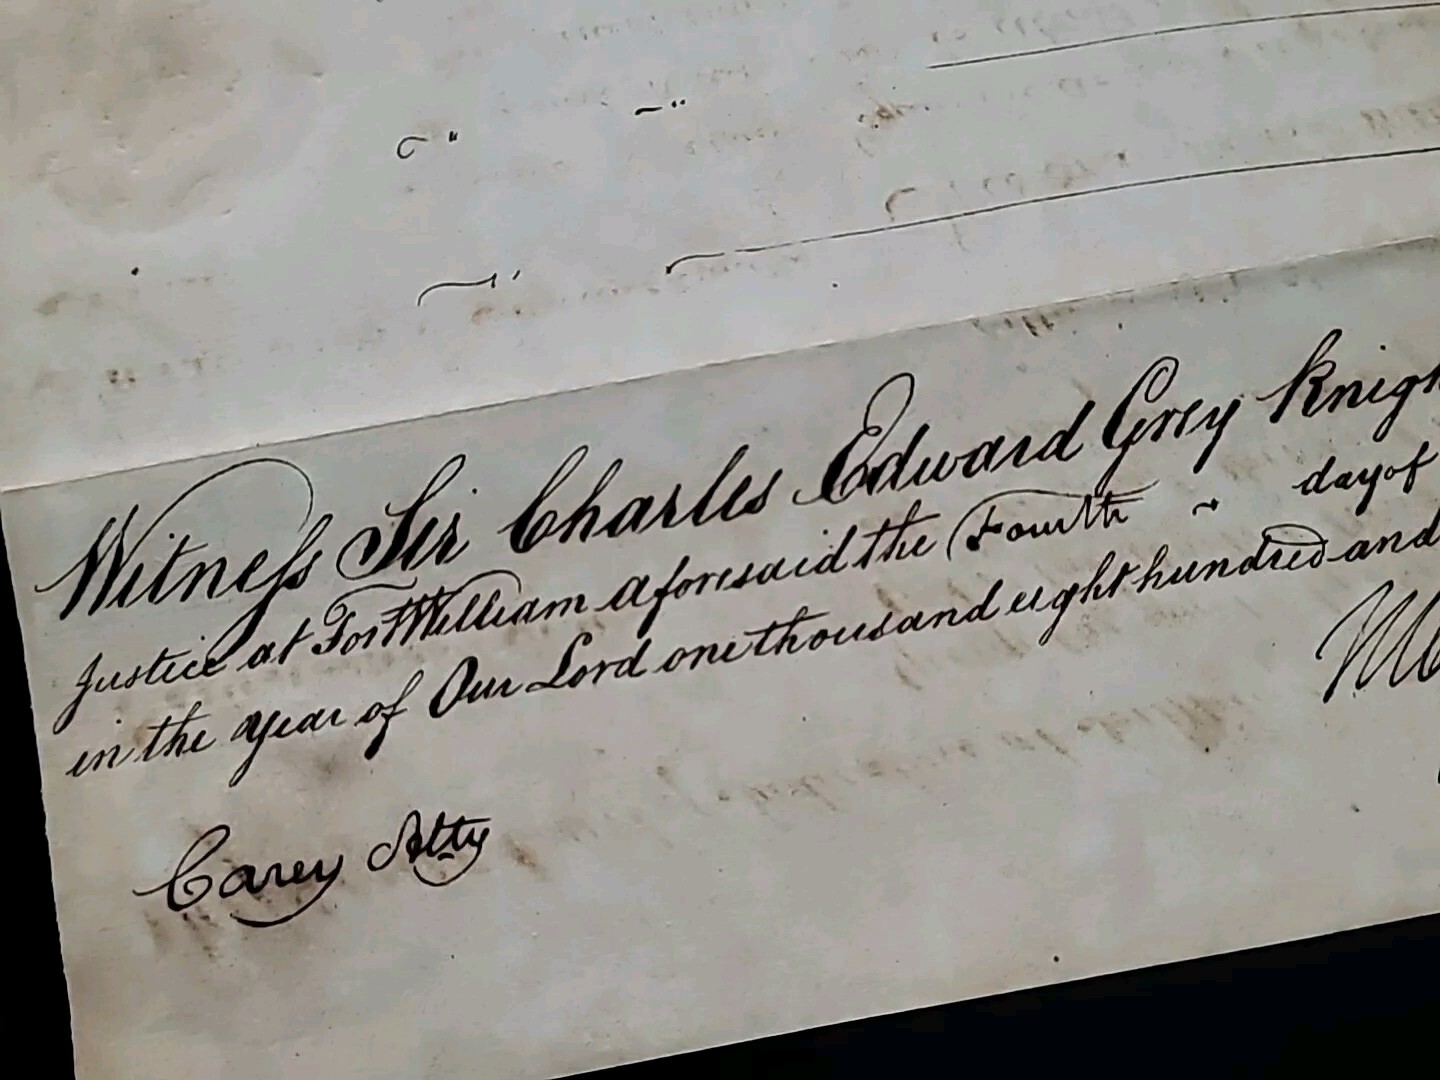 Witneſs Sir Charles Edward Grey Knigh
Justice at Fort William aforesaid the Fourth day of
in the year of Our Lord one thousand eight hundred and
Carey Atty